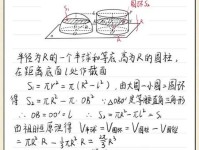 圆环S₂
半径为R的一个半球和等底、高为R的圆柱,
在距离底面l处作截面
S₁ = πr² = π(R²-l²), 由大圆-小圆=圆环
得 S₂ = πR² - π·O'B² ∵△OBO'是等腰直角三角形
∴ O'B = OO' = l ∴ S₂ = πR² - πl²
由祖暅原理得 V半球 = V圆环 = V圆柱 - V圆锥
= πR³ - ⅓πR³ = ⅔πR³